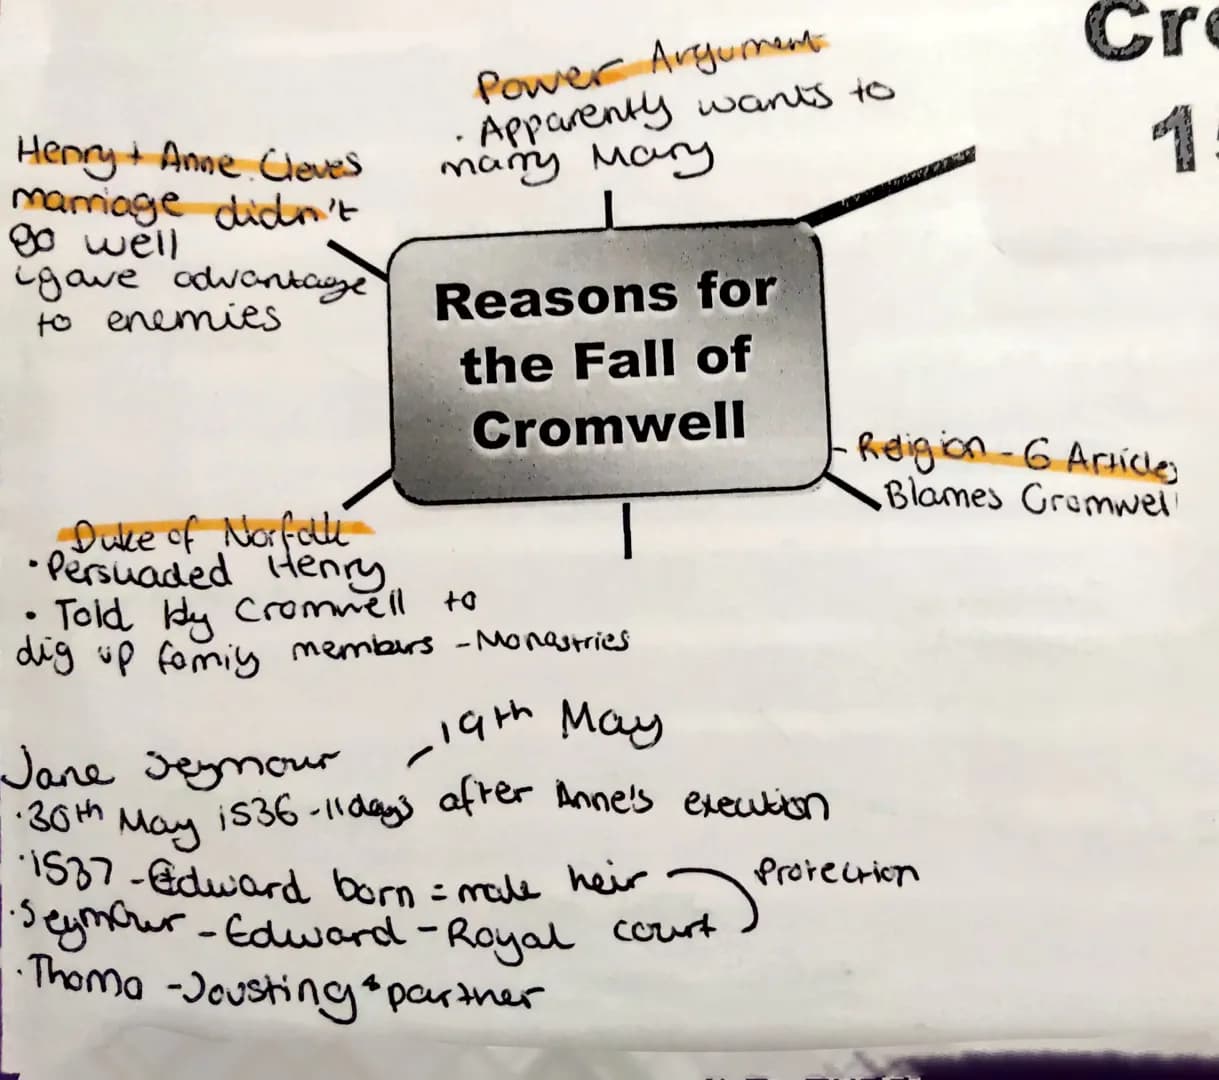 Cr
1
Power Argument
· Apparently wants to
marry Mary
Henry + Anne Cleves
marriage didn't
go well
↳gave advantage
to enemies
Reasons for
the Fall of
Cromwell
- Religion - 6 Articles
Blames Cromwell
Duke of Norfolk
· Persuaded Henry
· Told by Cromwell to
dig up famiy members - Monastries
19th May
Jane Seymour
· 30th May 1536 - 11 days after Anne's execution
· 1537 - Edward born = male heir
Protection
· Seymour - Edward - Royal court
· Thoma - Jousting partner